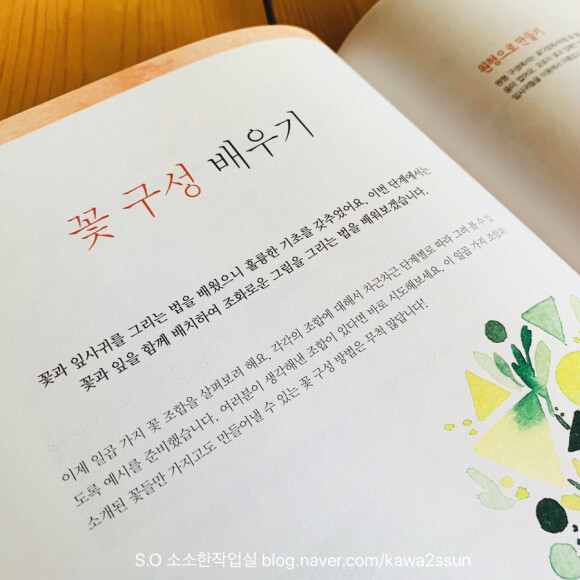 꽃 구성 배우기
꽃과 잎사귀를 그리는 법을 배웠으니 훌륭한 기초를 갖추었어요. 이번 단계에서는
꽃과 잎을 함께 배치하여 조화로운 그림을 그리는 법을 배워보겠습니다.
이제 일곱 가지 꽃 조합을 살펴보려 해요. 각각의 조합에 대해서 차근차근 단계별로 따라 그려 볼 수 있
도록 예시를 준비했습니다. 여러분이 생각해낸 조합이 있다면 바로 시도해보세요. 이 일곱 가지 조합과
소개된 꽃들만 가지고도 만들어낼 수 있는 꽃 구성 방법은 무척 많답니다!
원형으로 만들기
S.O 소소한작업실 blog.naver.com/kawa2ssun